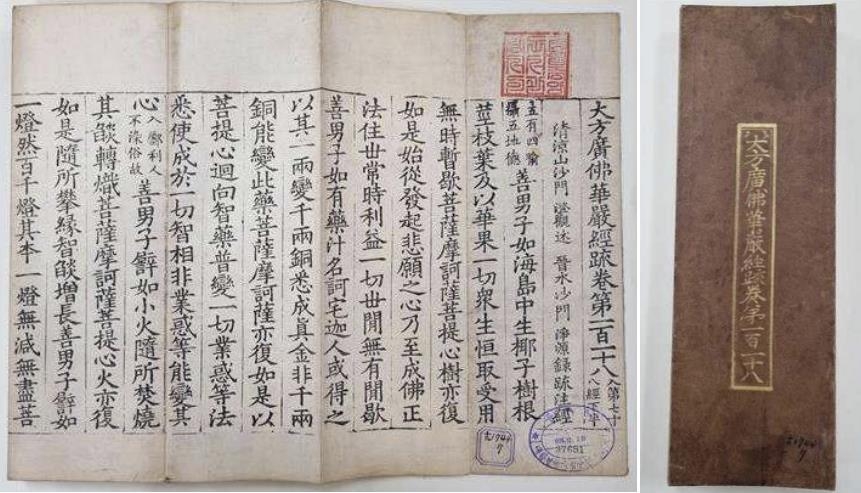 大方廣佛華嚴經䟽卷第一百一十八 入第七十八經下半
清涼山沙門 澄觀述 晉水沙門 淨源錄䟽注經
立有四喻攝五地德 善男子如海島中生椰子樹根
莖枝葉及以華果一切衆生恒取受用
無時暫歇菩薩摩訶薩菩提心樹亦復
如是始從發起悲願之心乃至成佛正
法住世常時利益一切世閒無有閒歇
善男子如有藥汁名訶宅迦人或得之
以其一兩變千兩銅悉成真金非千兩
銅能變此藥菩薩摩訶薩亦復如是以
菩提心迴向智藥普變一切業惑等法
悉使成於一切智相非業惑等能變其
心 入鄽利人不染俗故 善男子譬如小火隨所焚燒
其燄轉熾菩薩摩訶薩菩提心火亦復
如是隨所攀緣智燄增長善男子譬如
一燈然百千燈其本一燈無減無盡菩
大方廣佛華嚴經疏卷第一百一十八